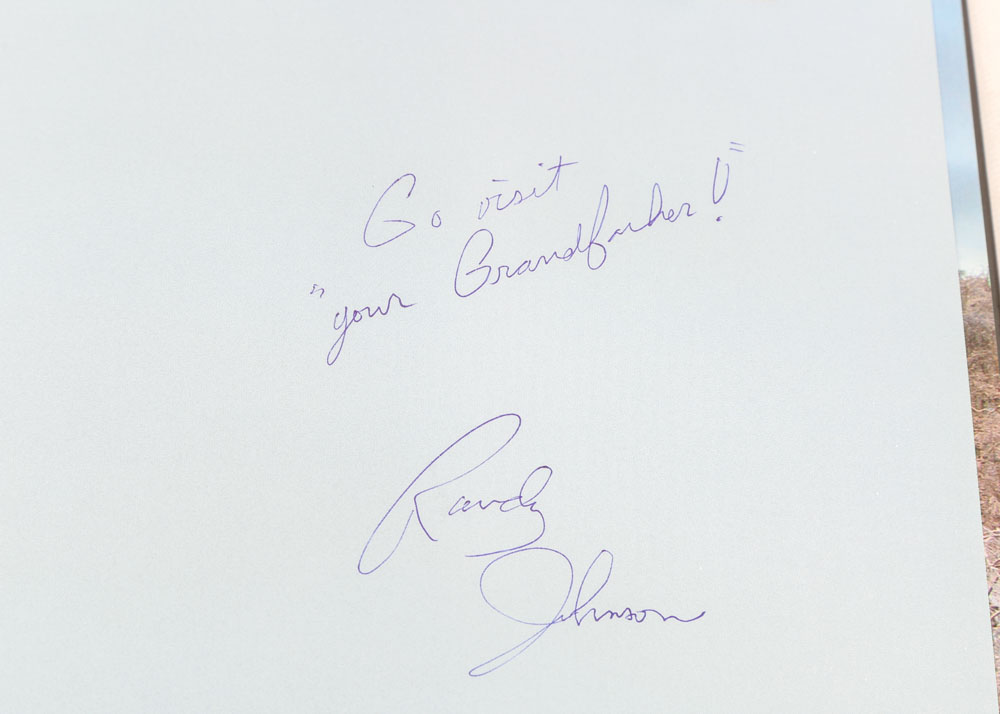 Go visit
"your Grandfather!"
Randy
Johnson